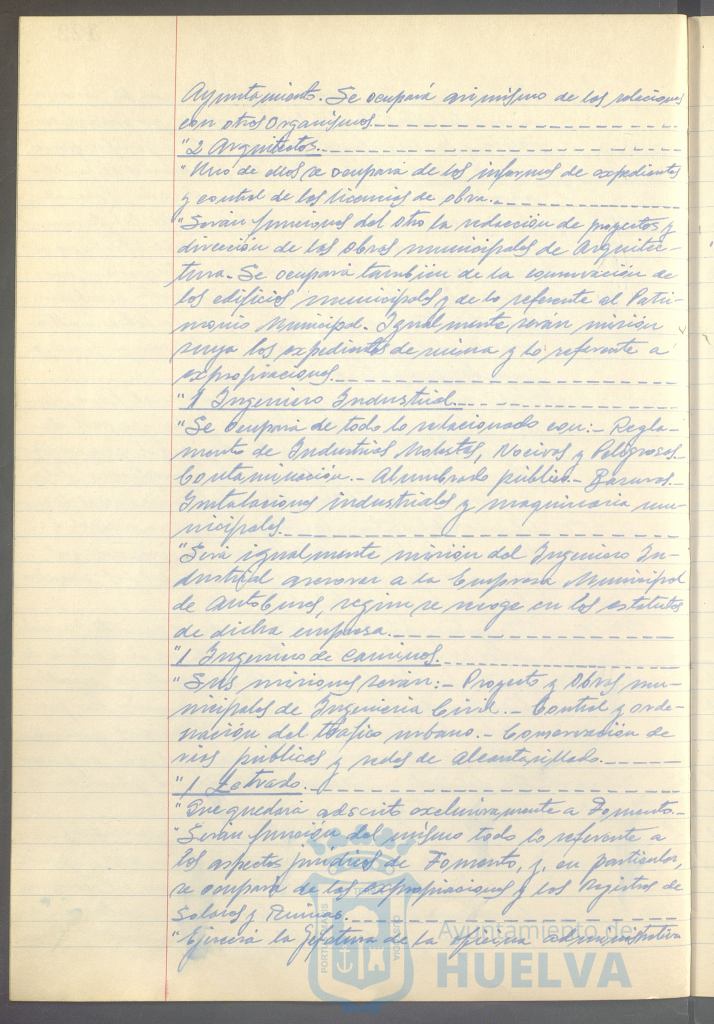 Ayuntamiento. Se ocupará asimismo de las relaciones
con otros Organismos.
"2 Arquitectos.
"Uno de ellos se ocupará de los informes de expedientes
y control de las licencias de obra.
"Serán funciones del otro la redacción de proyectos y
dirección de las Obras municipales de Arquitec-
tura.- Se ocupará también de la conservación de
los edificios municipales y de lo referente al Patri-
monio Municipal. Igualmente serán misión
suya los expedientes de ruina y lo referente a
expropiaciones.
"1 Ingeniero Industrial.
"Se ocupará de todo lo relacionado con:- Regla-
mento de Industrias Molestas, Nocivas y Peligrosas.
Contaminación.- Alumbrado público.- Basuras.-
Instalaciones industriales y maquinaria mu-
nicipales.
"Será igualmente misión del Ingeniero In-
dustrial asesorar a la Empresa Municipal
de Autobuses, según se recoge en los estatutos
de dicha empresa.
"1 Ingeniero de Caminos.
"Sus misiones serán:- Proyecto y Obras mu-
nicipales de Ingeniería Civil.- Control y orde-
nación del tráfico urbano.- Conservación de
vías públicas y redes de Alcantarillado.
"1 Letrado.
"Que quedará adscrito exclusivamente a Fomento.-
"Serán función del mismo todo lo referente a
los aspectos jurídicos de Fomento, y, en particular,
se ocupará de las expropiaciones y los Registros de
Solares y Ruinas.
"Ejercerá la Jefatura de la oficina administrativa
Ayuntamiento de
HUELVA